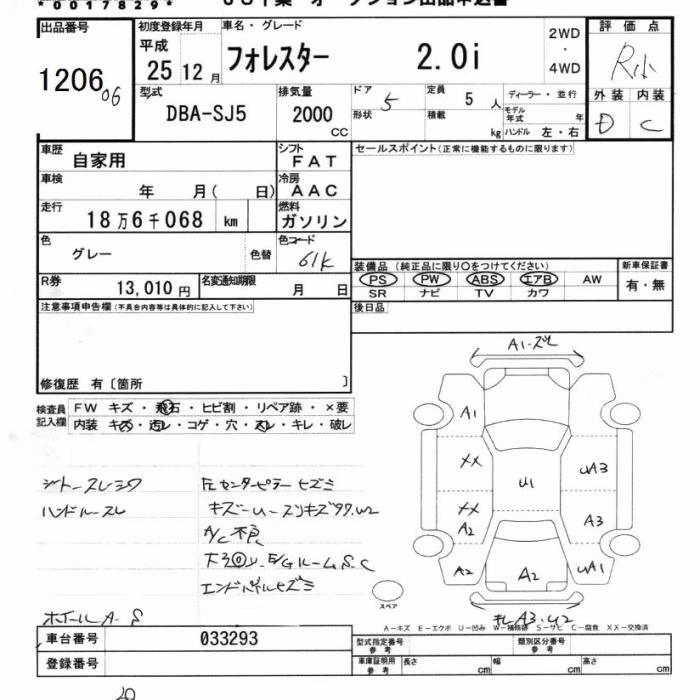 *00178297*
出品番号 初度登録年月 車名・グレード 評価点
1206 06
平成 25年 12月
フォレスター 2.0i
2WD・4WD
R小
型式 排気量 ドア 定員 ディーラー・並行 外装 内装
DBA-SJ5 2000 CC 5 5人
形状 積載 kg モデル年式 年 ハンドル 左・右
D C
車歴 自家用 シフト FAT セールスポイント(正常に機能するものに限ります)
車検 年 月( 日) 冷房 AAC
走行 18万6千068 km 燃料 ガソリン
色 グレー 色替 色コード 61K
装備品(純正品に限り○をつけてください) 新車保証書
PS PW ABS エアB AW 有・無
SR ナビ TV カワ
R券 13,010円 名変通知期限 月 日
後日品
注意事項申告欄(不具合内容等は具体的に記入して下さい)
修復歴 有〔箇所 〕
検査員記入欄
FW キズ・飛石・ヒビ割・リペア跡・×要
内装 キズ・汚レ・コゲ・穴・スレ・キレ・破レ
ハンドルスレ
FLセンターピラーヒズミ
A/C不良
エンドパネルヒズミ
ホイールA-S
A1
XX
XX
A2
A2
U1
A2
UA3
A3
UA1
スペア
A-キズ E-エクボ U-凹み W-補修跡 S-サビ C-腐食 XX-交換済
車台番号 033293
登録番号
型式指定番号 参考 類別区分番号 参考
車庫証明用 参考 長さ cm 幅 cm 高さ cm